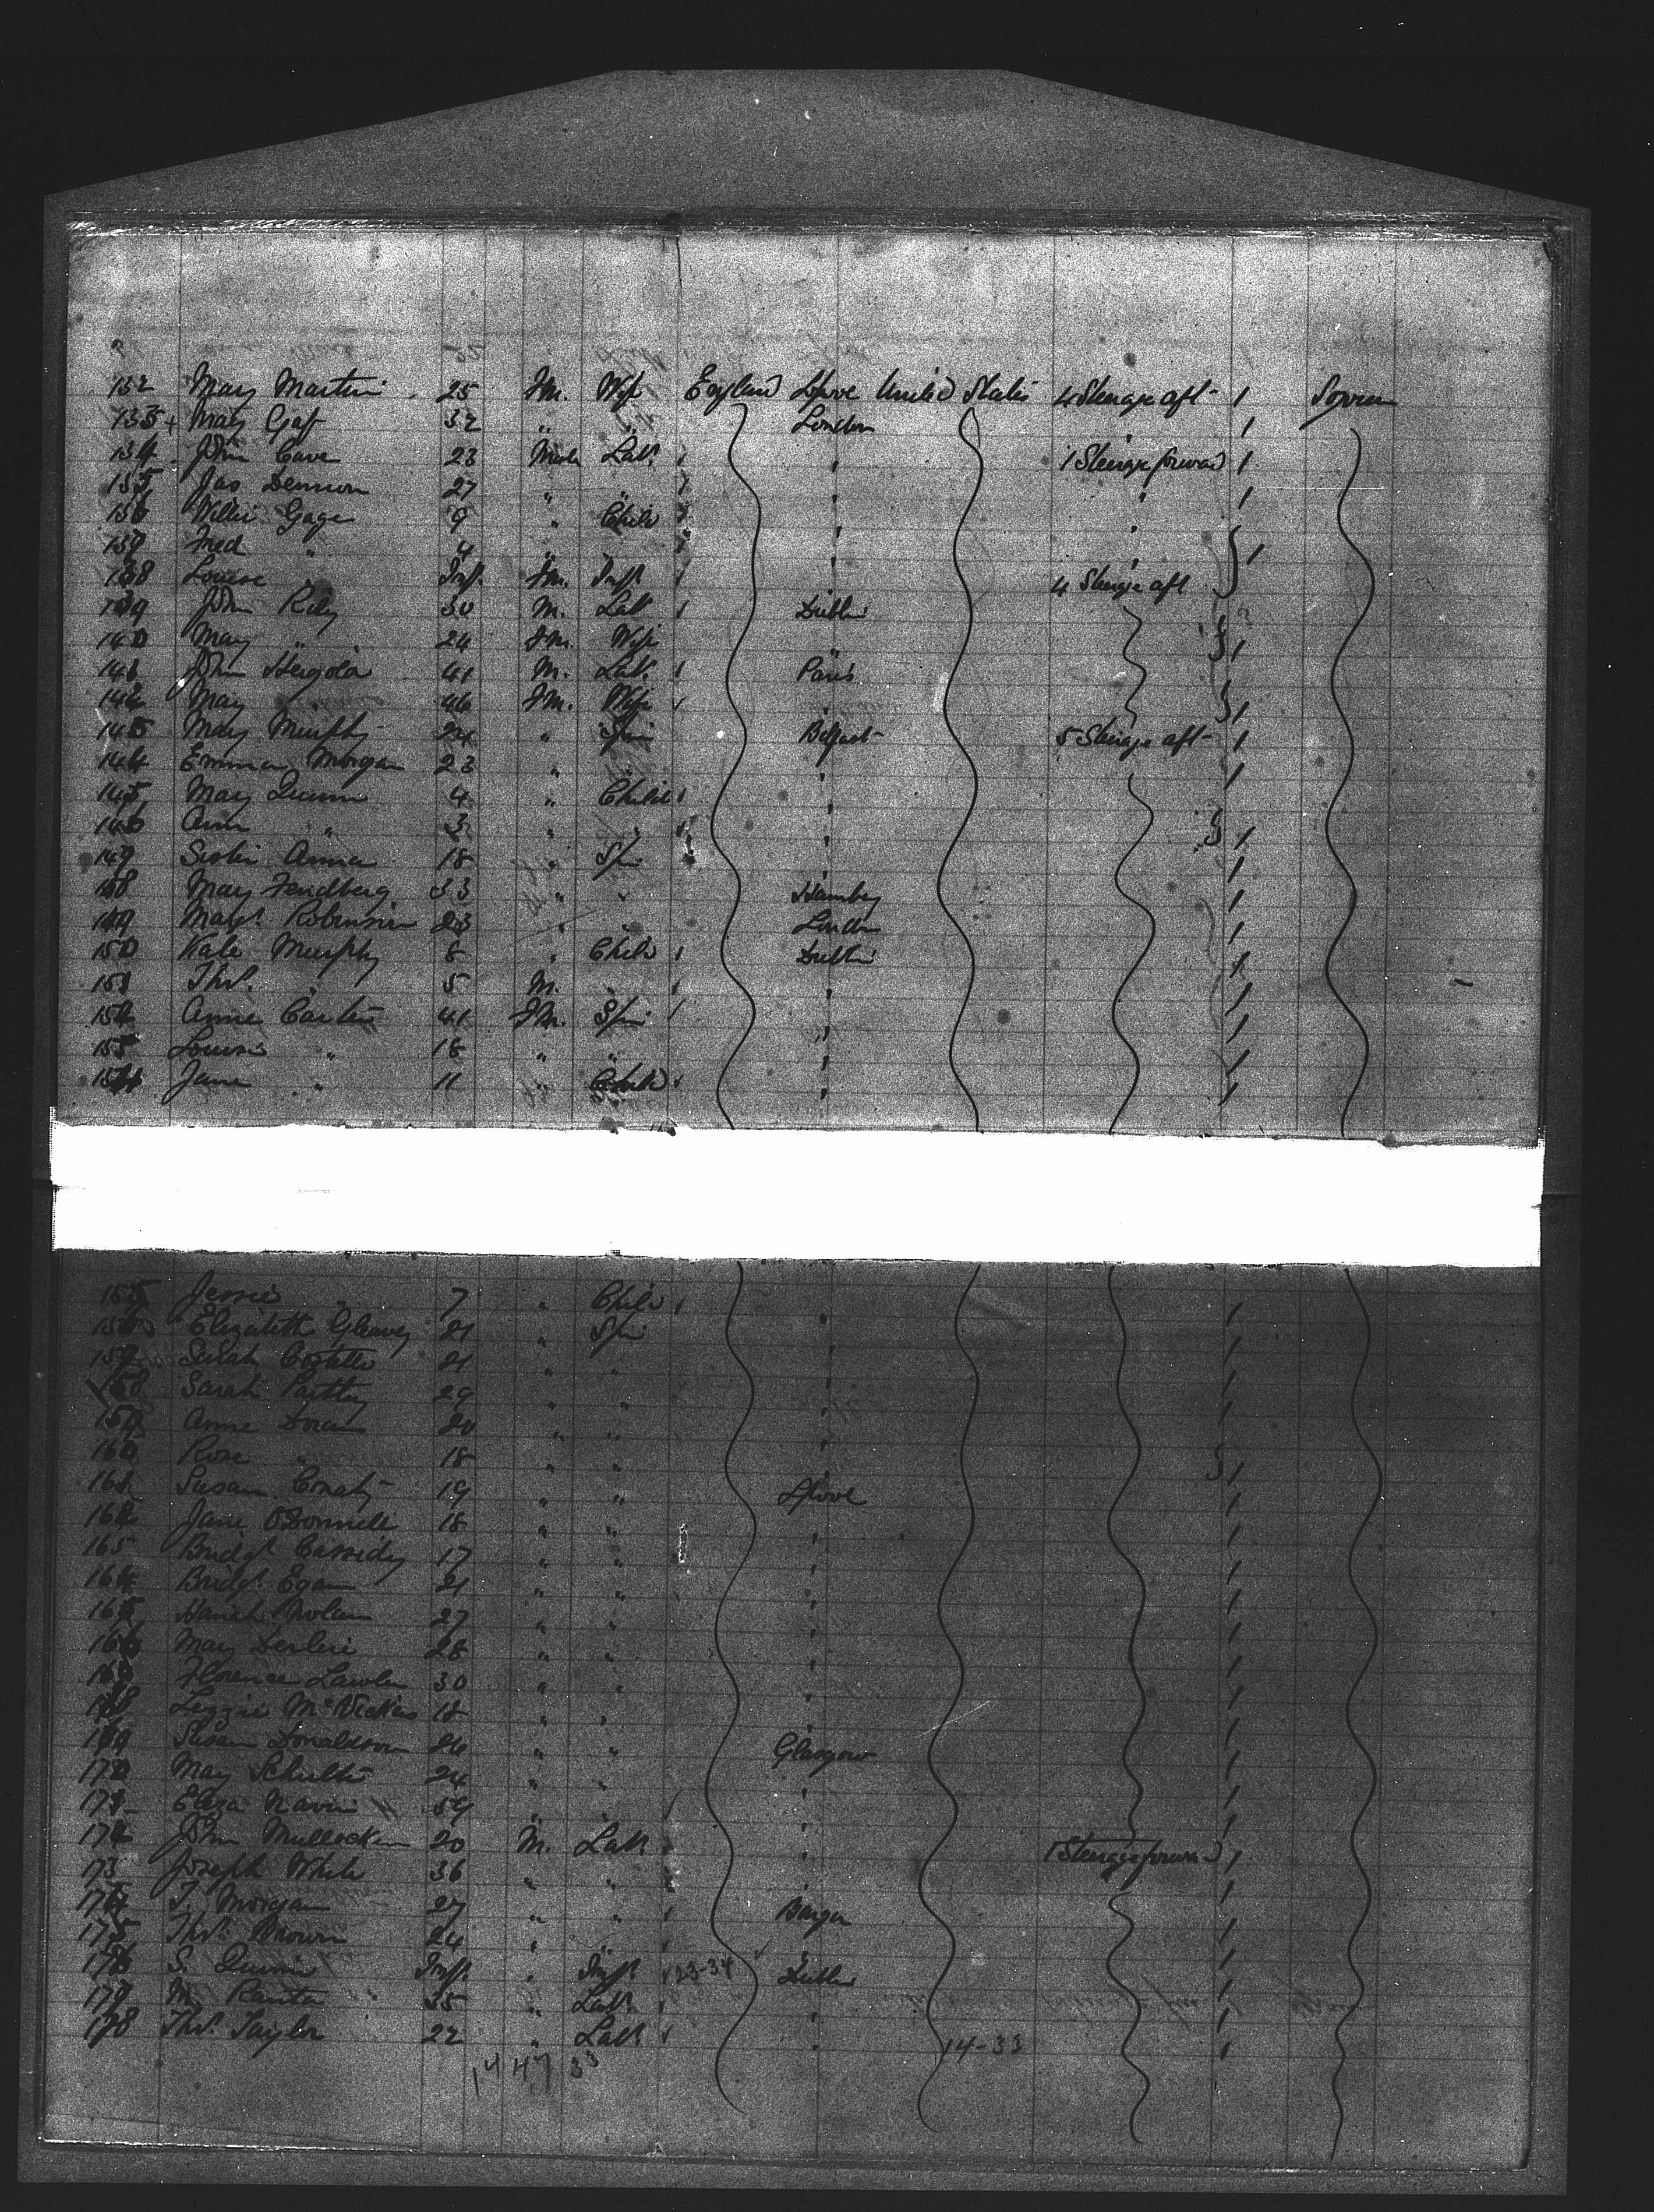 132 Mary Martin 25 Fm. Wife England Lpool United States 4 Steerage aft 1
133 + Mary 32 " " London 1
134 John Cave 23 Male Lab. " 1 Steerage forward 1
135 Jas Dennion 27 " " " " 1
136 Willie Gage 9 " Child " "
137 Fred " 4 " " " " 1
138 Louise " Inft. Fm. Inft 4 Steerage aft
139 John Rily 30 M. Lab Dublin
140 Mary " 24 Fm. Wife " 1
141 John 41 M. Lab. Paris
142 Mary " 46 Fm. Wife " 1
143 Mary Murphy 24 " Spin Belfast 5 Steerage aft 1
144 Emma Morgan 23 " " " 1
145 Mary Quinn 4 " Child "
146 Ann " 3 " " " 1
147 Sister Anna 18 " Spin " 1
148 Mary Fendberg 33 " " Hamburg 1
149 Margt Robinson 23 " " London 1
150 Kate Murphy 8 " Child Dublin 1
151 Thos. " 5 M. " " 1
152 Annie Carter 41 Fm. Spin " 1
153 Louisa " 18 " " " 1
154 Jane " 11 " Child " 1
155 Jessie " 7 " Child " 1
156 Elizabeth Gleavey 21 " Spin " 1
157 Sarah Costello 21 " " " 1
158 Sarah 29 " " " 1
159 Anne Doran 20 " " "
160 Rose " 18 " " " 1
161 Susan 19 " " Lpool 1
162 Jane O'Donnell 18 " " " 1
163 Bridgt Cassidy 17 " " " 1
164 Bridgt Egan 21 " " " 1
165 Hanah Nolan 27 " " " 1
166 Mary 28 " " " 1
167 Florence Lawler 30 " " " 1
168 Lizzie McVickers 18 " " " 1
169 Susan Donaldson 26 " " Glasgow 1
170 Mary Schultz 24 " " " 1
171 Eliza Navin 59 " " " 1
172 John 20 M. Lab. " 1 Steerage forward 1
173 Joseph White 36 " " " 1
174 T. Morgan 27 " " Bangor 1
175 Thos. Brown 24 " " " 1
176 S. Quinn Inft. " Inft 23-34 Dublin 1
177 M. 35 " Lab. " 1
178 Thos. Taylor 22 " Lab " 14-33 1
14 47 33